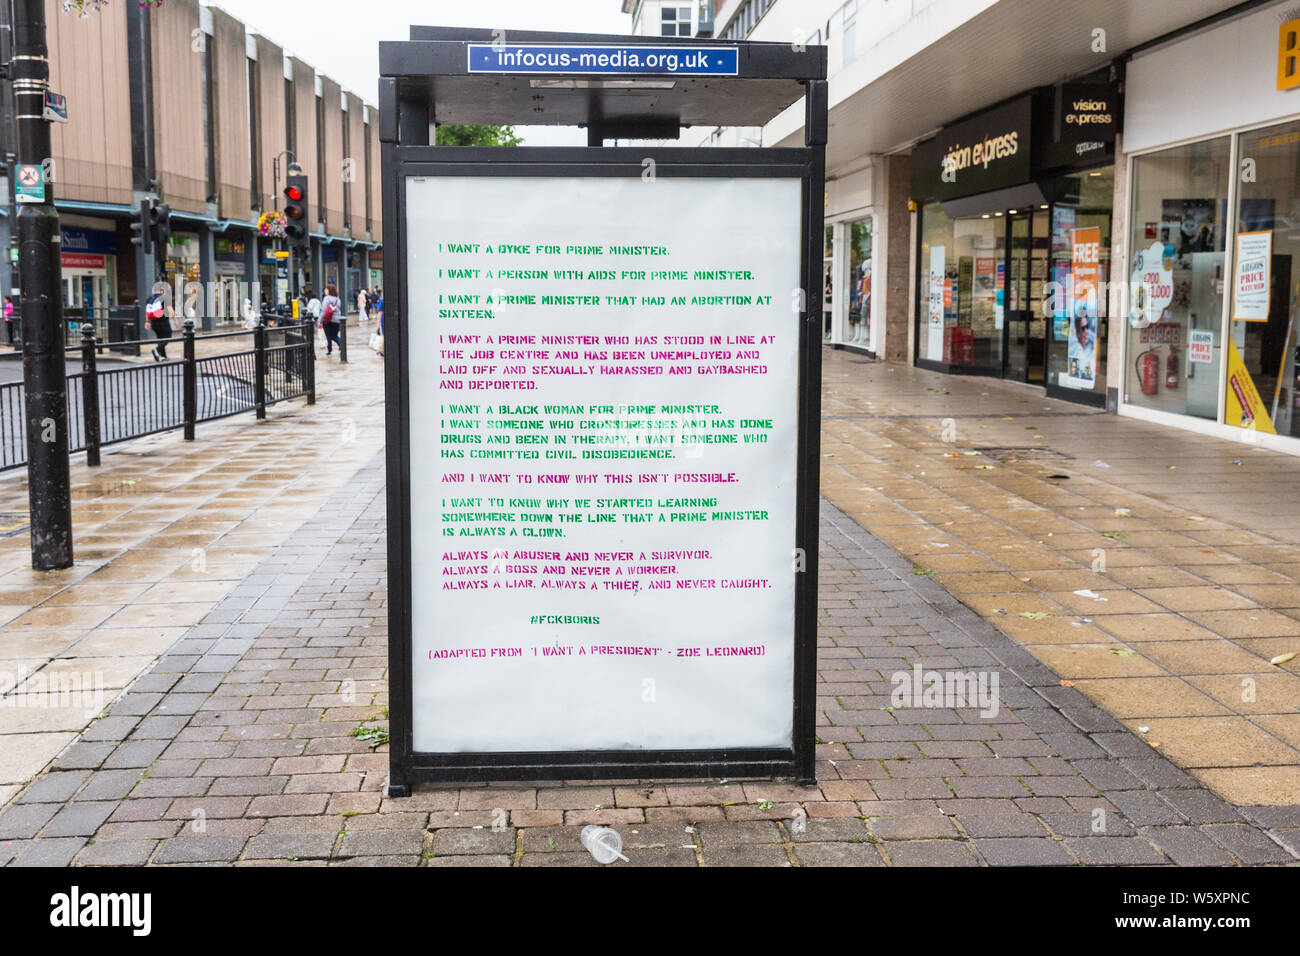 infocus-media.org.uk
I WANT A DYKE FOR PRIME MINISTER.
I WANT A PERSON WITH AIDS FOR PRIME MINISTER.
I WANT A PRIME MINISTER THAT HAD AN ABORTION AT
SIXTEEN.
I WANT A PRIME MINISTER WHO HAS STOOD IN LINE AT
THE JOB CENTRE AND HAS BEEN UNEMPLOYED AND
LAID OFF AND SEXUALLY HARASSED AND GAYBASHED
AND DEPORTED.
I WANT A BLACK WOMAN FOR PRIME MINISTER.
I WANT SOMEONE WHO CROSSDRESSES AND HAS DONE
DRUGS AND BEEN IN THERAPY. I WANT SOMEONE WHO
HAS COMMITTED CIVIL DISOBEDIENCE.
AND I WANT TO KNOW WHY THIS ISN'T POSSIBLE.
I WANT TO KNOW WHY WE STARTED LEARNING
SOMEWHERE DOWN THE LINE THAT A PRIME MINISTER
IS ALWAYS A CLOWN.
ALWAYS AN ABUSER AND NEVER A SURVIVOR.
ALWAYS A BOSS AND NEVER A WORKER.
ALWAYS A LIAR, ALWAYS A THIEF, AND NEVER CAUGHT.
#FCKBORIS
(ADAPTED FROM "I WANT A PRESIDENT" - ZOE LEONARD)
vision express
vision
express
opticians
B
FREE
ARGOS
PRICE
MATCHED
ARGOS
PRICE
MATCHED
Smith
a
alamy
alamy
Image ID: W5XPNC
www.alamy.com